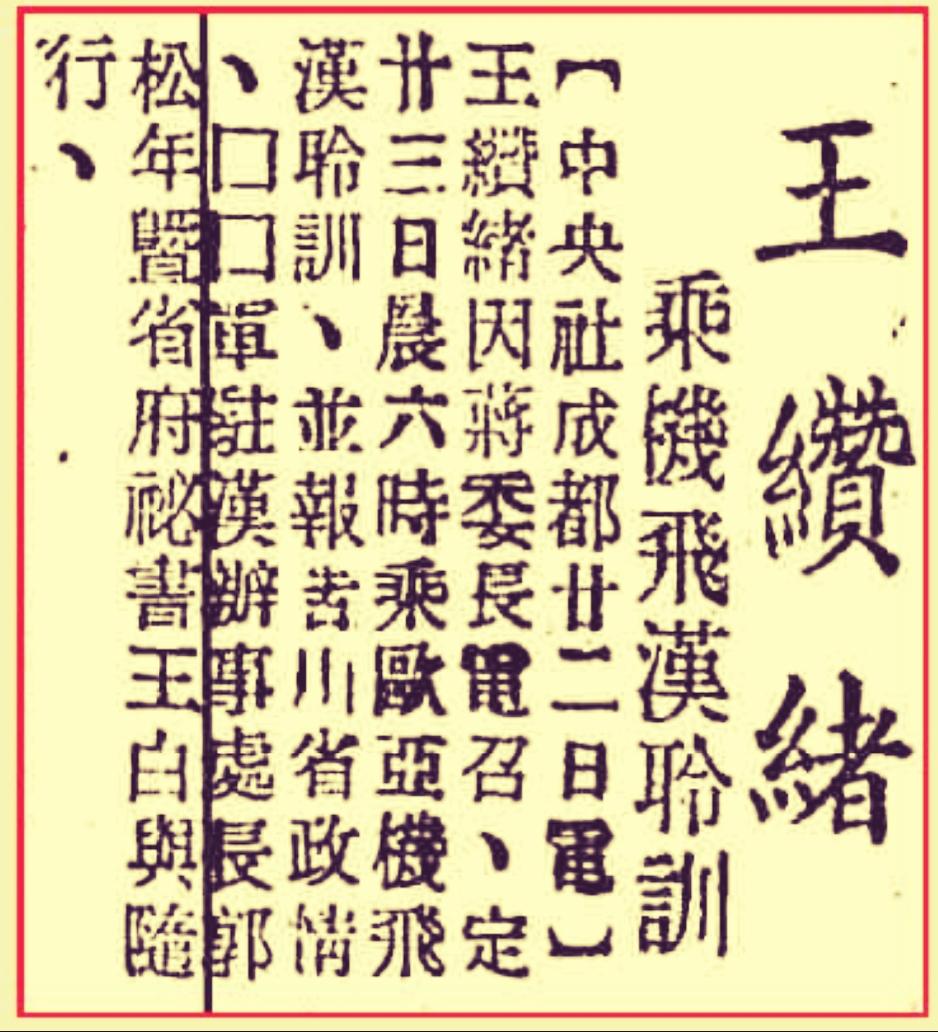 王纘緒
乘機飛漢聆訓
【中央社成都廿二日電】
王纘緒因蔣委長電召、定
廿三日晨六時乘歐亞機飛
漢聆訓、並報告川省政情
、囗囗軍駐漢辦事處長郭
松年暨省府祕書王白與隨
行、